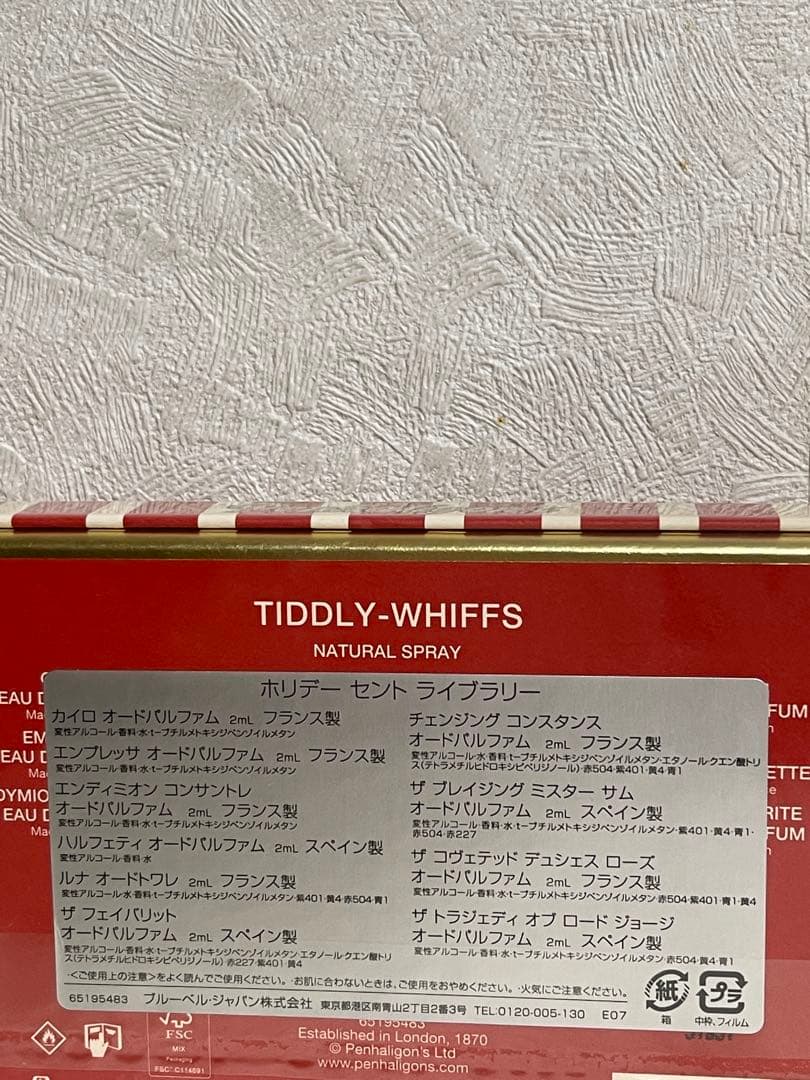 TIDDLY-WHIFFS
NATURAL SPRAY
ホリデー セント ライブラリー
カイロ オードパルファム 2mL フランス製
変性アルコール・香料・水・t-ブチルメトキシジベンゾイルメタン
エンプレッサ オードパルファム 2mL フランス製
変性アルコール・香料・水・t-ブチルメトキシジベンゾイルメタン
エンディミオン コンサントレ
オードパルファム 2mL フランス製
変性アルコール・香料・水・t-ブチルメトキシジベンゾイルメタン
ハルフェティ オードパルファム 2mL スペイン製
変性アルコール・香料・水
ルナ オードトワレ 2mL フランス製
変性アルコール・水・香料・t-ブチルメトキシジベンゾイルメタン・紫401・黄4・赤504・青1
ザ フェイバリット
オードパルファム 2mL スペイン製
変性アルコール・香料・水・t-ブチルメトキシジベンゾイルメタン・エタノール・クエン酸トリ
ス(テトラメチルヒドロキシピペリジノール)・赤227・紫401・黄4
チェンジング コンスタンス
オードパルファム 2mL フランス製
変性アルコール・水・香料・t-ブチルメトキシジベンゾイルメタン・エタノール・クエン酸トリ
ス(テトラメチルヒドロキシピペリジノール)・赤504・紫401・黄4・青1
ザ ブレイジング ミスター サム
オードパルファム 2mL スペイン製
変性アルコール・香料・水・t-ブチルメトキシジベンゾイルメタン・紫401・黄4・青1・
赤504・赤227
ザ コヴェテッド デュシェス ローズ
オードパルファム 2mL フランス製
変性アルコール・香料・水・t-ブチルメトキシジベンゾイルメタン・赤504・紫401・青1・黄4
ザ トラジェディ オブ ロード ジョージ
オードパルファム 2mL スペイン製
変性アルコール・香料・水・t-ブチルメトキシジベンゾイルメタン・赤504・黄4・青1
・<ご使用上の注意>をよく読んでご使用ください。・お肌に合わないときは、ご使用をおやめください。・火気にご注意ください。
65195483 ブルーベル・ジャパン株式会社 東京都港区南青山2丁目2番3号 TEL:0120-005-130 E07
紙
箱
プラ
中枠、フィルム
EAU D
Ma
EM
EAU D
Mad
DYMIO
EAU D
Mad
FUM
ETTE
RITE
FUM
FSC
MIX
Packaging
65195483
Established in London, 1870
© Penhaligon's Ltd
www.penhaligons.com